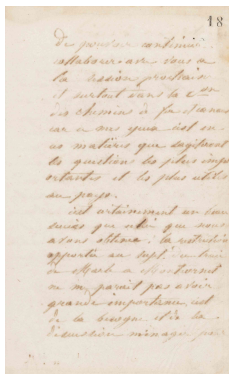 18
De pouvoir continuer
collaborer avec vous a
la session prochaine
et surtout dans la Con
des chemins à fer
car a mes yeux c'est en
ces matières que s'agitent
les questions les plus impo
ortantes et les plus utiles
au pays.
C'est certainement un
succès que celui que nous
avons obtenu; la restriction
apportée au
de Mark a
ne m'parait pas avoir
grande importance, c'est
de la et de la
discussion ménagée pour